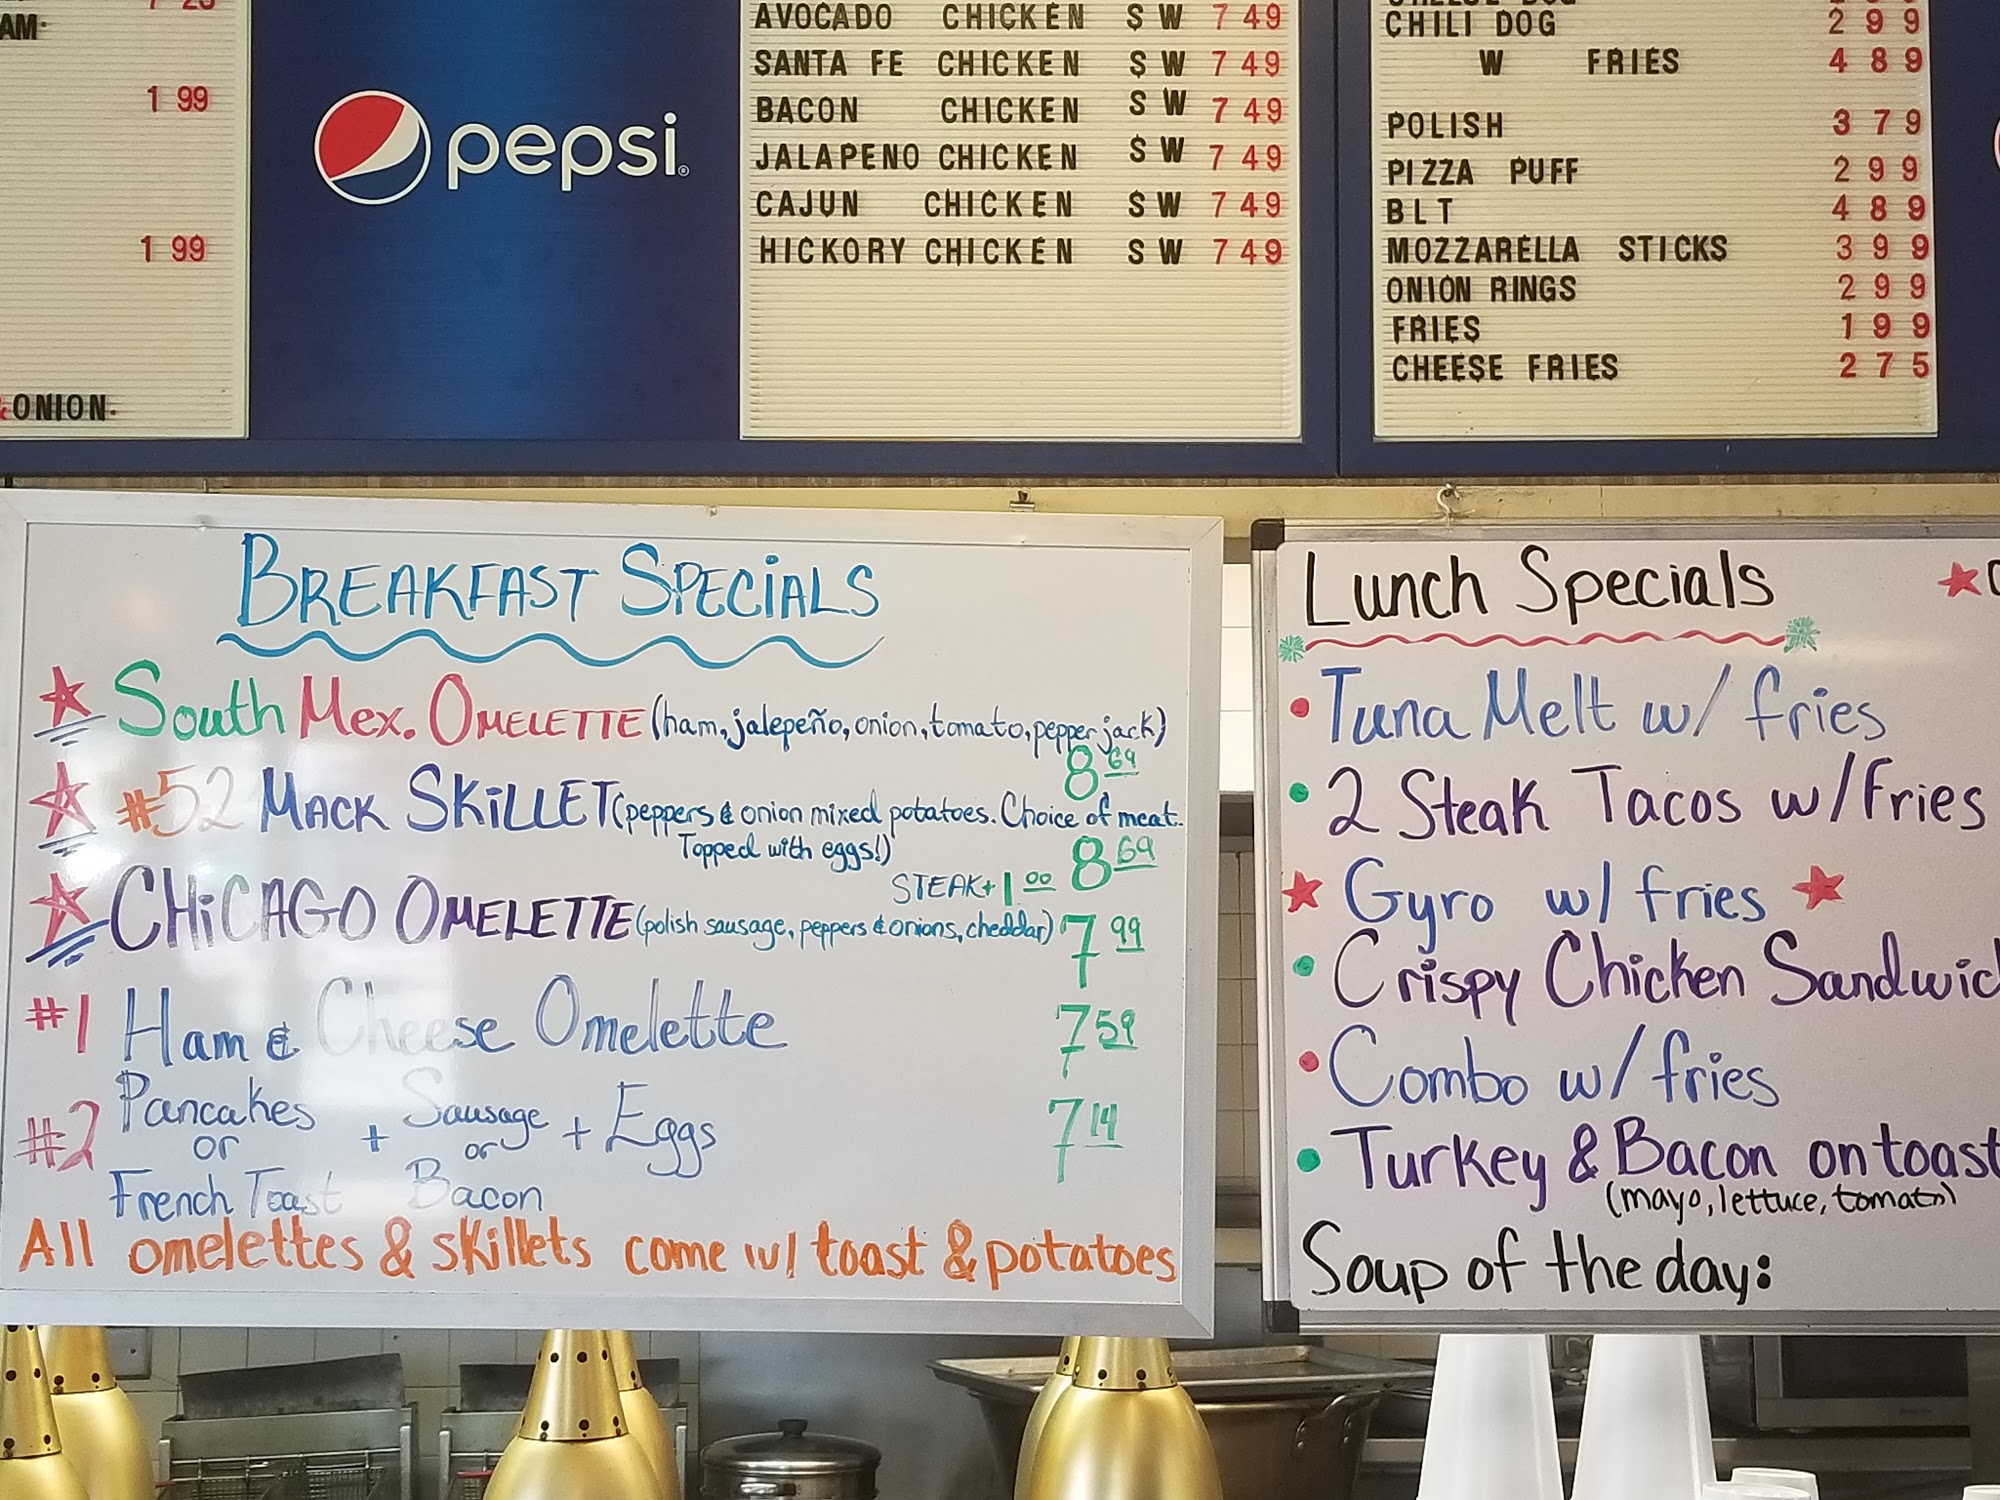 AM.
1 99
1 99
&ONION.
pepsi
AVOCADO CHICKEN SW 7 49
SANTA FE CHICKEN SW 7 49
BACON CHICKEN SW 7 49
JALAPENO CHICKEN SW 7 49
CAJUN CHICKEN SW 7 49
HICKORY CHICKEN SW 7 49
CHILI DOG 2 99
W FRIES 4 89
POLISH 3 79
PIZZA PUFF 2 99
BLT 4 89
MOZZARELLA STICKS 3 99
ONION RINGS 2 99
FRIES 1 99
CHEESE FRIES 2 75
BREAKFAST SPECiALS
South Mex. OMELETTE (ham, jalepeño, onion, tomato, pepper jack)
8 69
#52 MACK SKiLLET (peppers & onion mixed potatoes. Choice of meat.
Topped with eggs!) 8 69
STEAK + 1 00
CHiCAGO OMELETTE (polish sausage, peppers & onions, cheddar) 7 99
#1 Ham & Cheese Omelette 7 59
#2 Pancakes or French Toast + Sausage or Bacon + Eggs 7 14
All omelettes & skillets come w/ toast & potatoes
Lunch Specials
Tuna Melt w/ fries
2 Steak Tacos w/Fries
Gyro w/ fries
Crispy Chicken Sandwic
Combo w/ fries
Turkey & Bacon on toast
(mayo, lettuce, tomato)
Soup of the day: